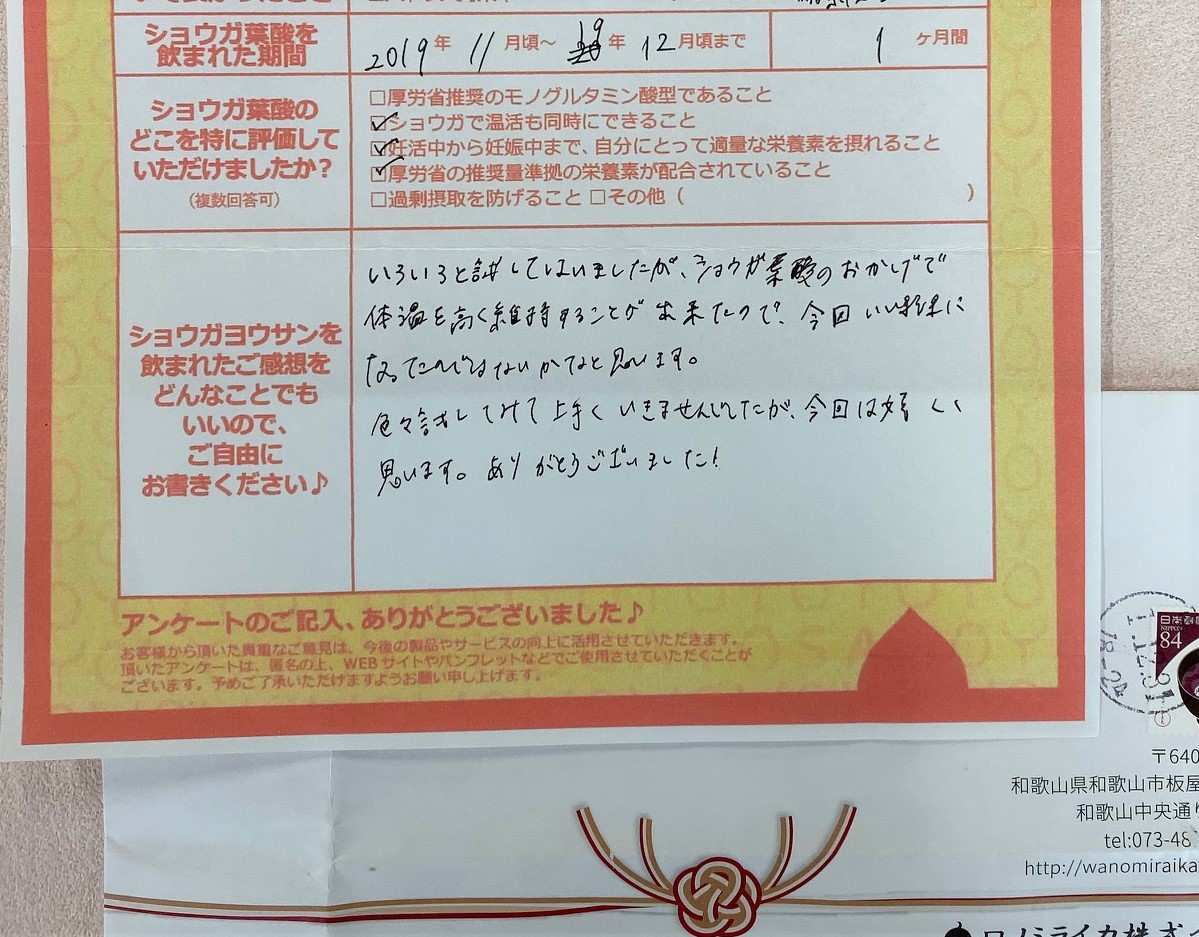 ショウガ葉酸を
飲まれた期間
2019年 11月頃~ 19年 12月頃まで
1ヶ月間
ショウガ葉酸の
どこを特に評価して
いただけましたか?
(複数回答可)
□厚労省推奨のモノグルタミン酸型であること
☑ショウガで温活も同時にできること
☑妊活中から妊娠中まで、自分にとって適量な栄養素を摂れること
☑厚労省の推奨量準拠の栄養素が配合されていること
□過剰摂取を防げること □その他( )
ショウガヨウサンを
飲まれたご感想を
どんなことでも
いいので、
ご自由に
お書きください♪
いろいろと試してはいましたが、ショウガ葉酸のおかげで
体温を高く維持することが出来たので、今回いい結果に
なったのではないかなと思います。
色々試してみて上手くいきませんでしたが、今回は嬉しく
思います。ありがとうございました!
アンケートのご記入、ありがとうございました♪
お客様から頂いた貴重なご意見は、今後の製品やサービスの向上に活用させていただきます。
頂いたアンケートは、匿名の上、WEBサイトやパンフレットなどでご使用させていただくことが
ございます。予めご了承いただけますようお願い申し上げます。
日本郵便
NIPPON
84
〒640
和歌山県和歌山市板屋
和歌山中央通り
tel:073-48
http://wanomiraika
ワノミライカ株式